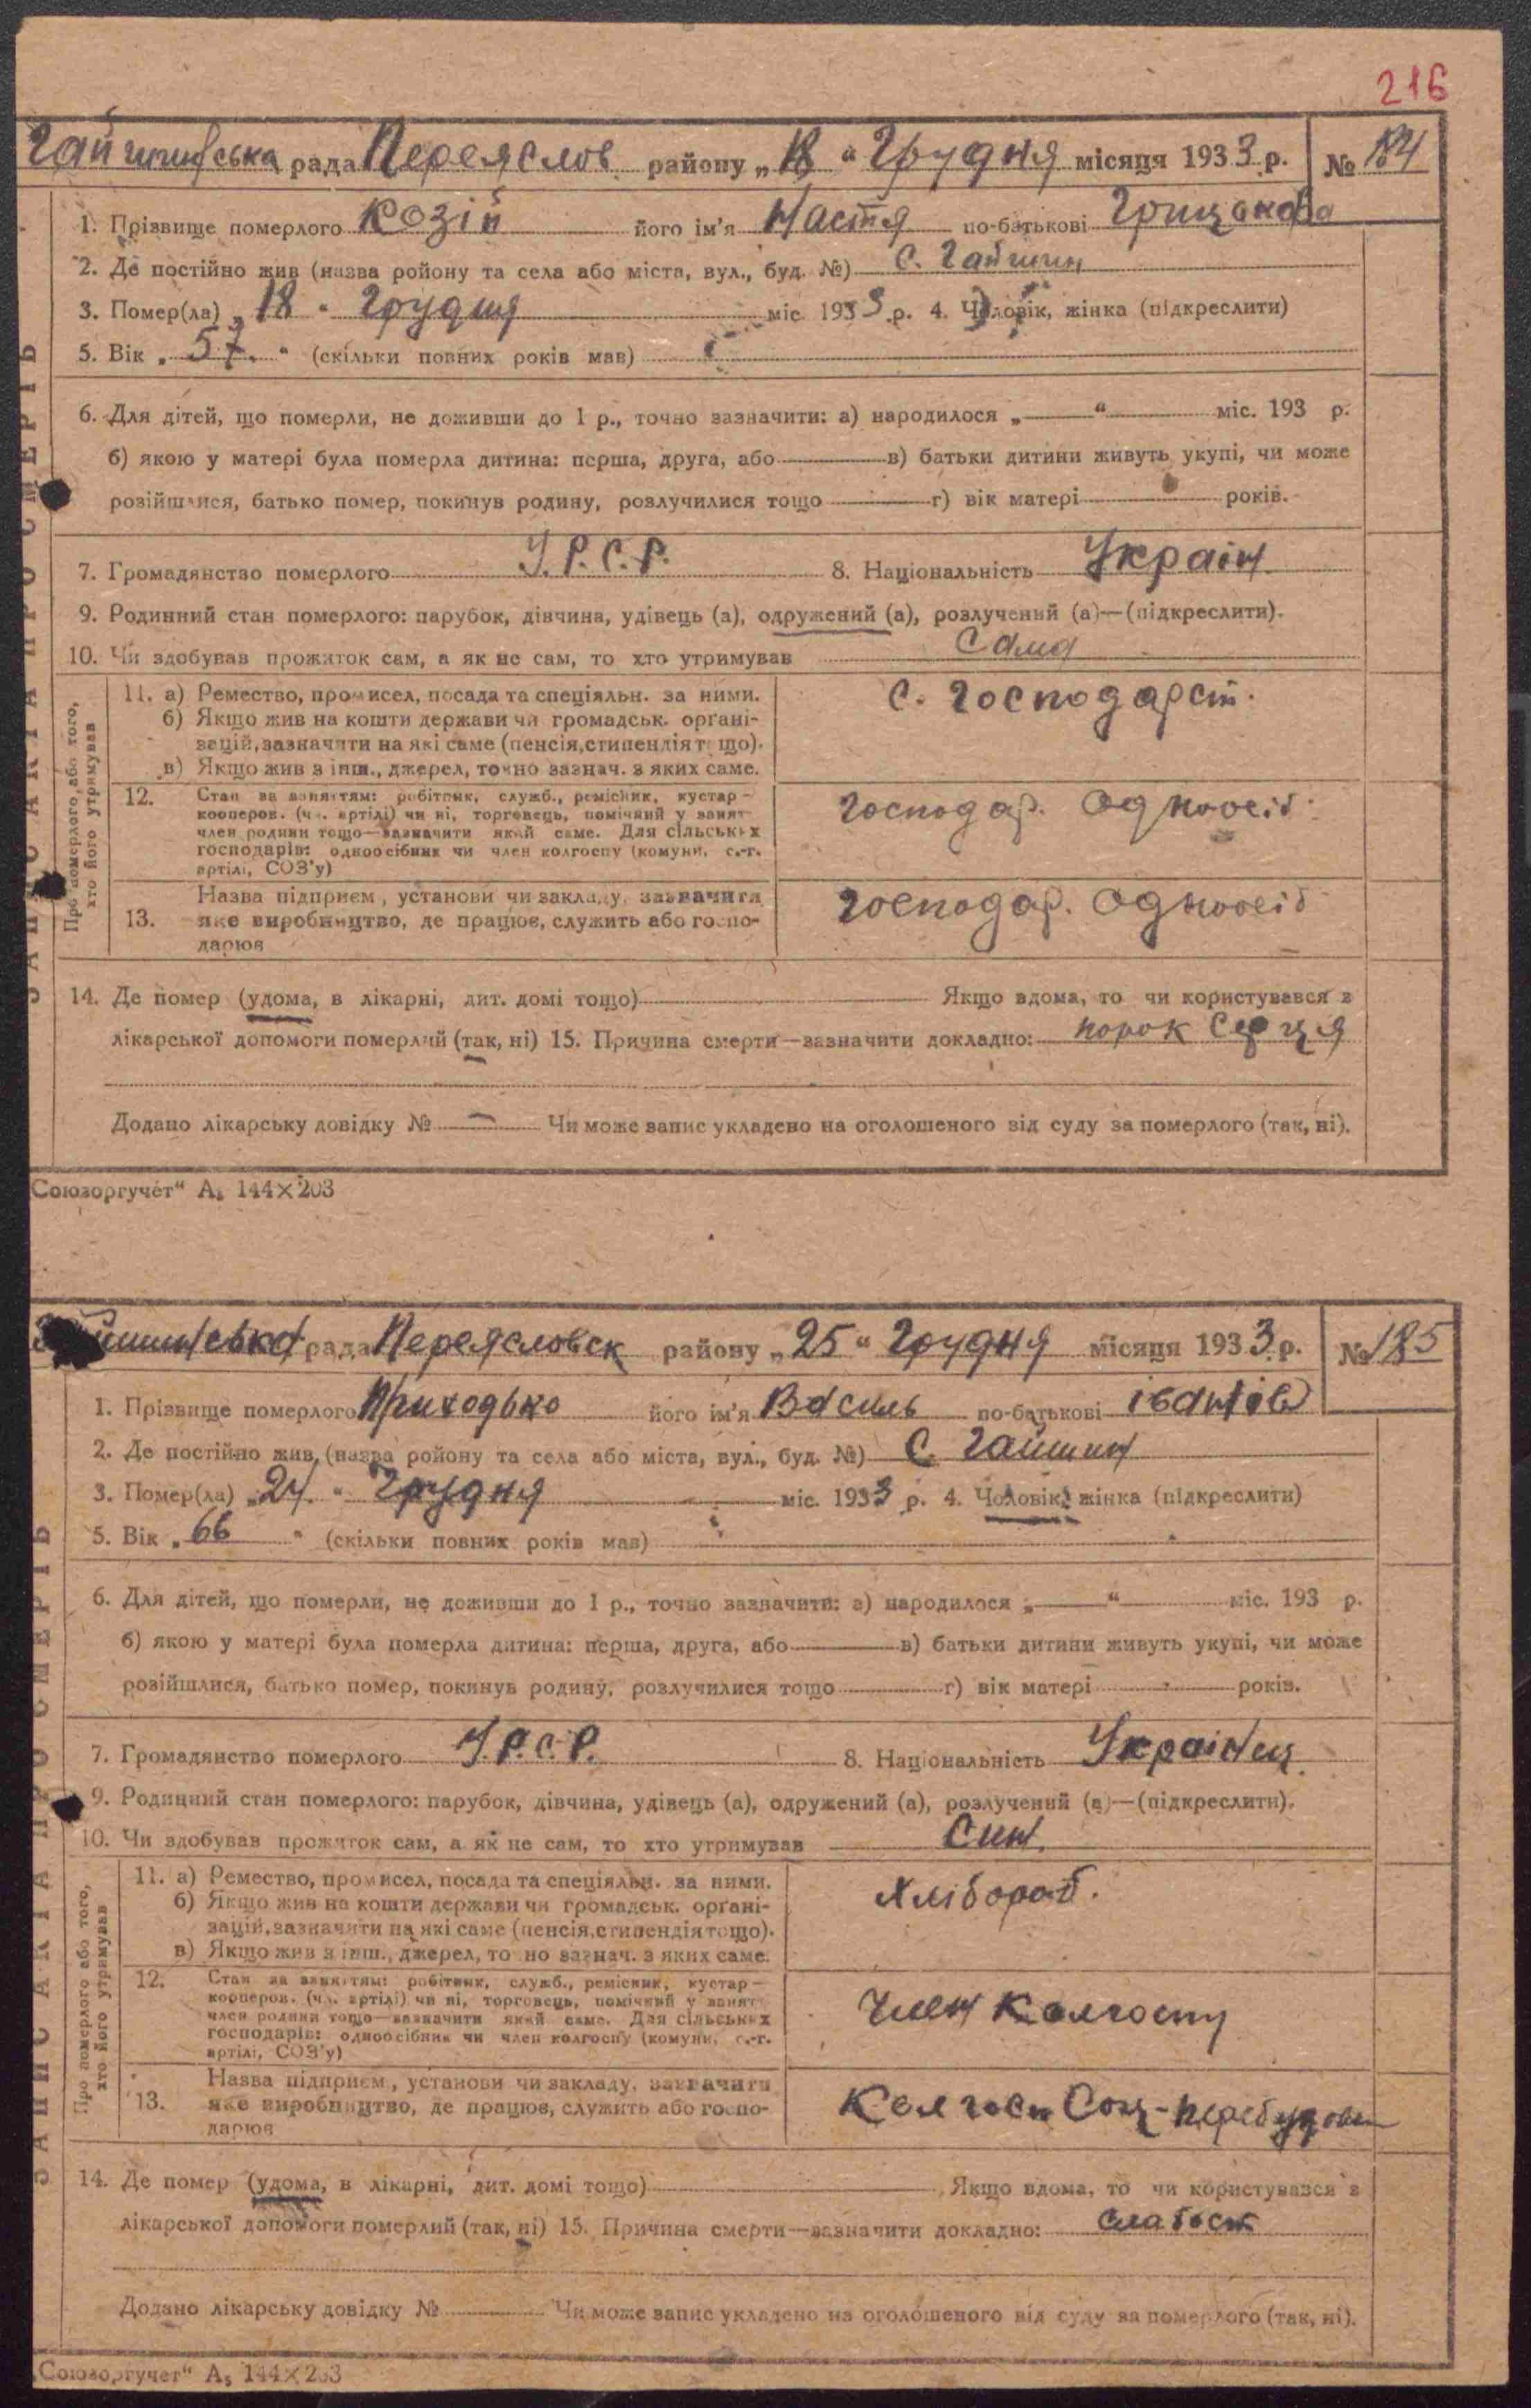 216
Гайшинська рада Переяслов району „18“ Грудня місяця 1933 р. № 184
1. Прізвище померлого Козій його ім'я Настя по-батькові
2. Де постійно жив (назва ройону та села або міста, вул., буд. №) С. Гайшин
3. Помер(ла) „18“ Грудня міс 1933 р. 4. Чоловік, жінка (підкреслити)
5. Вік „57.“ (скільки повних років мав)
6. Для дітей, що померли, не доживши до 1 р., точно зазначити: а) народилося „—“ міс. 193 р.
б) якою у матері була померла дитина: перша, друга, або — в) батьки дитини живуть укупі, чи може
розійшлися, батько помер, покинув родину, розлучилися тощо — г) вік матері років.
7. Громадянство померлого У.Р.С.Р. 8. Національність Україн.
9. Родинний стан померлого: парубок, дівчина, удівець (а), одружений (а), розлучений (а)—(підкреслити).
10. Чи здобував прожиток сам, а як не сам, то хто утримував Сама
Про померлого або того, хто його утримував
11. а) Ремество, промисел, посада та спеціяльн. за ними. С. Господарст.
б) Якщо жив на кошти держави чи громадськ. органі-
зацій, зазначити на які саме (пенсія, стипендія тощо).
в) Якщо жив з інш., джерел, точно зазнач. з яких саме.
12. Стан за заняттям: робітник, служб., ремісник, кустар—
кооперов. (чл. артілі) чи ні, торговець, помічний у занят
член родини тощо—зазначити який саме. Для сільських
господарів: одноосібник чи член колгоспу (комуни, с.-г.
артілі, СОЗ'у)
Господар. Одноосіб.
13. Назва підприєм, установи чи закладу, зазначити
яке виробництво, де працює, служить або госпо-
дарюв
Господар. Одноосіб
14. Де помер (удома, в лікарні, дит. домі тощо) Якщо вдома, то чи користувався з
лікарської допомоги померлий (так, ні) 15. Причина смерти—зазначити докладно: порок Серця
Додано лікарську довідку № — Чи може запис укладено на оголошеного від суду за померлого (так, ні).
Союзоргучет“ А₅ 144×203
ЗАПИС АКТА ПРО СМЕРТЬ
рада Переясловск району „25“ Грудня місяця 1933 р. № 185
1. Прізвище померлого Приходько його ім'я Василь по-батькові Іванів
2. Де постійно жив (назва ройону та села або міста, вул., буд. №) С. Гайшин
3. Помер(ла) „24.“ Грудня міс. 1933 р. 4. Чоловік, жінка (підкреслити)
5. Вік „66“ (скільки повних років мав)
6. Для дітей, що померли, не доживши до 1 р., точно зазначити: а) народилося „—“ міс. 193 р.
б) якою у матері була померла дитина: перша, друга, або — в) батьки дитини живуть укупі, чи може
розійшлися, батько помер, покинув родину, розлучилися тощо — г) вік матері років.
7. Громадянство померлого У.Р.С.Р. 8. Національність Українец
9. Родинний стан померлого: парубок, дівчина, удівець (а), одружений (а), розлучений (а)—(підкреслити).
10. Чи здобував прожиток сам, а як не сам, то хто утримував Син
Про померлого або того, хто його утримував
11. а) Ремество, промисел, посада та спеціяльн. за ними. Хлібороб.
б) Якщо жив на кошти держави чи громадськ. органі-
зацій, зазначити на які саме (пенсія, стипендія тощо).
в) Якщо жив з інш., джерел, точно зазнач. з яких саме.
12. Стан за заняттям: робітник, служб., ремісник, кустар—
кооперов. (чл. артілі) чи ні, торговець, помічний у занят
член родини тощо—зазначити який саме. Для сільських
господарів: одноосібник чи член колгоспу (комуни, с.-г.
артілі, СОЗ'у)
Член Колгоспу
13. Назва підприєм, установи чи закладу, зазначити
яке виробництво, де працює, служить або госпо-
дарюв
Колгосп Соц-перебудови
14. Де помер (удома, в лікарні, дит. домі тощо) Якщо вдома, то чи користувався з
лікарської допомоги померлий (так, ні) 15. Причина смерти—зазначити докладно:
Додано лікарську довідку № Чи може запис укладено на оголошеного від суду за померлого (так, ні).
„Союзоргучет“ А₅ 144×203
ЗАПИС АКТА ПРО СМЕРТЬ